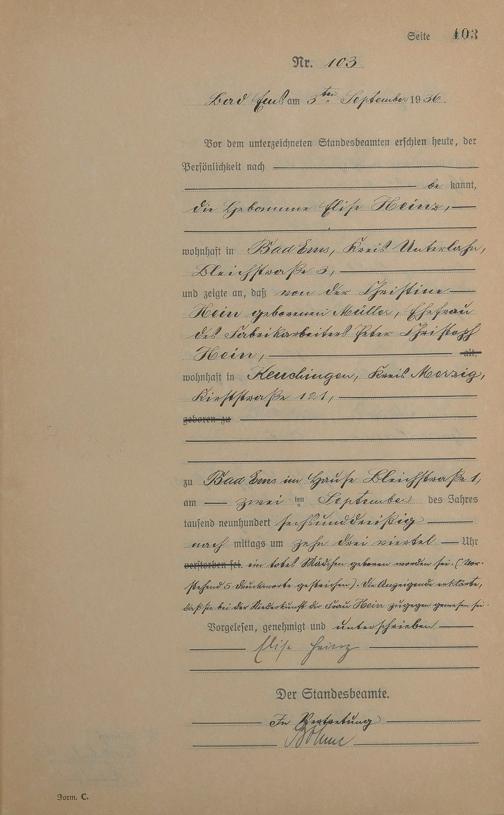 Seite 403
Nr. 103
Bad Ems am 3ten September 1936.
Vor dem unterzeichneten Standesbeamten erschien heute, der
Persönlichkeit nach
be kannt,
die Hebamme Elise Heinz,
wohnhaft in Bad Ems, Kreis Unterlahn,
Bleichstraße 3,
und zeigte an, daß von der Christine
Hein geborenen Müller, Ehefrau
des Fabrikarbeiters Peter Christoph
Hein, alt
wohnhaft in Keuchingen, Kreis Merzig,
121,
geboren zu
zu Bad Ems im Hause Bleichstraße 1,
am zwei ten September des Jahres
tausend neunhundert sechsunddreißig
nach mittags um zehn drei viertel Uhr
verstorben sei. ein totes Mädchen geboren worden sei. (Vor-
stehend 5 Druckworte gestrichen). Die Anzeigende erklärte,
daß sie bei der Niederkunft der Frau Hein zugegen gewesen sei.
Vorgelesen, genehmigt und unterschrieben
Elise Heinz
Der Standesbeamte.
In Vertretung
Form. C.